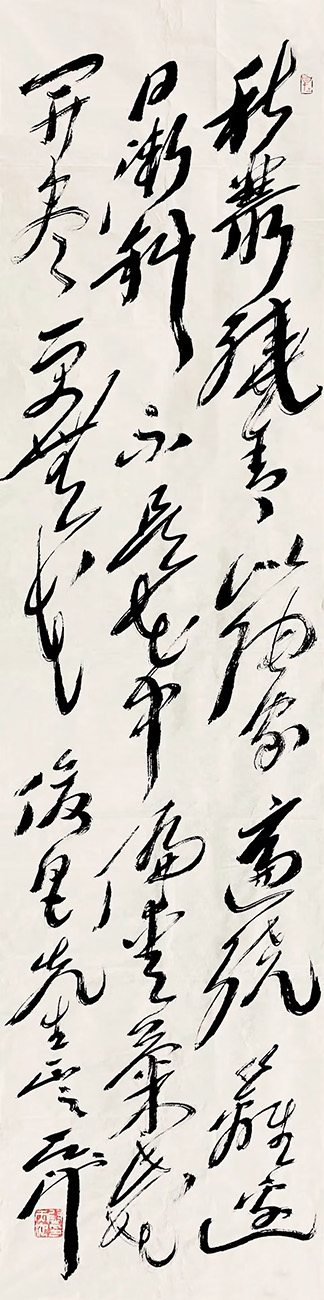 秋叢繞舍似陶家遍繞籬邊
日漸斜不是花中偏愛菊此花
開盡更無花 先生